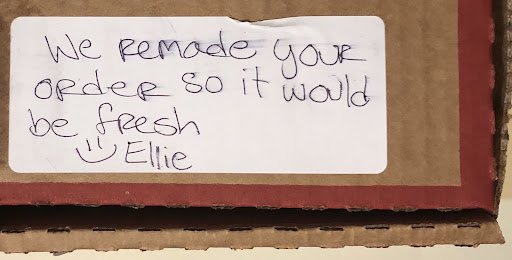 We remade your
order so it would
be fresh
Ellie